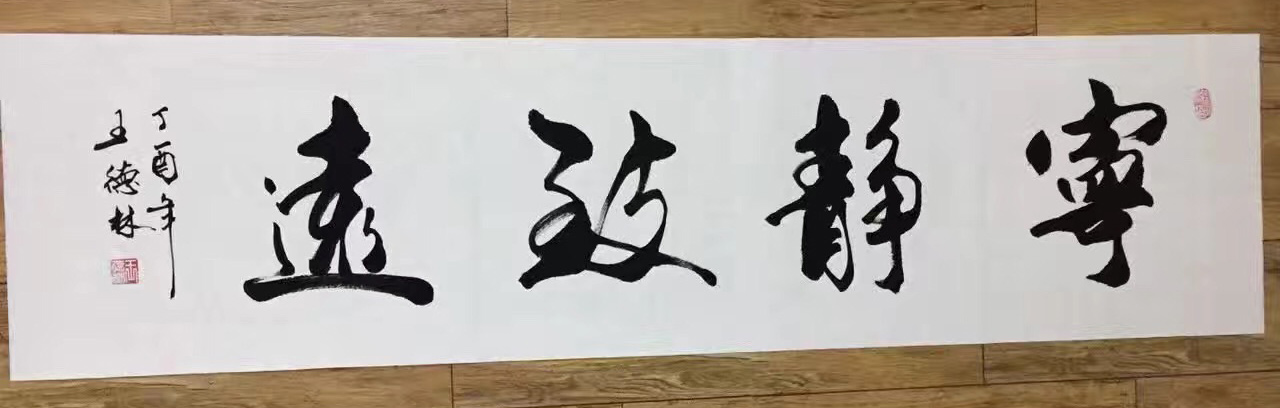 寧靜致遠
丁酉年
王德林